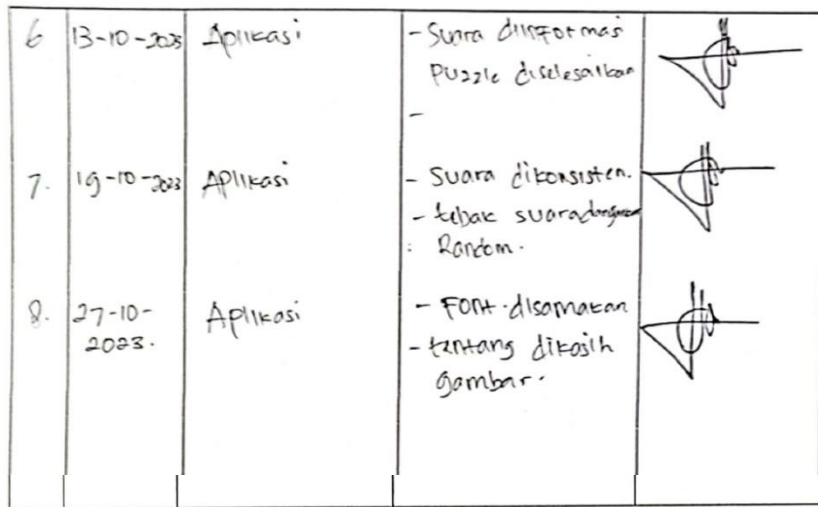 6 13-10-2023 Aplikasi - Suara diinformasi
Puzzle diselesaikan
-
7. 19-10-2023 Aplikasi - Suara dikonsisten.
- tebak suara
Random.
8. 27-10- Aplikasi - Font disamakan
2023. - tentang dikasih
gambar.